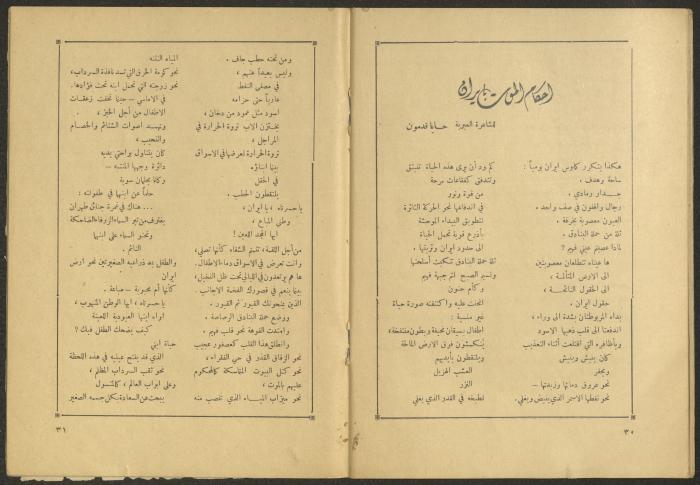 احكام الموت بايران
للشاعرة العبرية حايا قدمون
هكذا يتكرر كابوس ايران يومياً :
ساحة وهدف .
جدار رمادي .
رجال واقفون في صف واحد .
العيون معصوبة بخرقة .
ثلة من حملة البنادق .
لماذا عصبتم عيني فهيم ؟
ها عيناه تتطلعان معصوبتين
الى الارض المتألمة ،
الى الحقول النائحة ،
حقول ايران .
يداه المربوطتان بشدة الى وراء ،
اندفعتا الى قلب ذهبها الاسود
وبأظافره التي اقتلعت أثناء التعذيب
كان ينبش وينبش
ويحفر
نحو عروق دمائها وزبدتها —
نحو نفطها الاسمر الذي ينبض ويغلي .
كم ود أن يرى هذه الحياة تنبثق
وتتدفق كفقاعات مرحة
من قوة ونور
في اندفاعها نحو الحركة الثائرة
لتطويق البيداء الموحشة
بأذرع قوية تحمل الحياة
الى حدود ايران وتربتها .
ثلة حملة البنادق تنكبت أسلحتها
ونسير الصبح لثم جبهة فهيم
وكأم حنون
انحنت عليه واكتنفته صورة حياة
غير منسية :
اطفال بسيقان نحيفة وبطون منتفخة ،
يُنكمشون فوق الارض المالحة
ويلتقطون بأيديهم
العشب الهزيل
النزر
لطبخه في القدر الذي يغلي
٣٠
ومن تحته حطب جاف .
وليس بعيداً عنهم ،
في مصفى النفط
عارياً حتى حزامه
أسود مثل عمود من دخان ،
يختزن الاب ثروة الحرارة في
المراجل ،
ثروة الحرارة تعرضها في الاسواق
بينما ابناؤه
في الحقل
يلتقطون الحطب .
يا حسرتاه ، يا ايران ،
وطني المباع ،
ايها المجد اللعين !
من أجل اللقمة ، تلتهم الشقاء كأنها تصلي ،
وانت تعرض في الاسواق دماء الاطفال .
ها هم يرتعدون في الليالي تحت ظل النخيل ،
بينما ينعم في قصورك الفخمة الاجانب .
الذين يمنحونك القبور ثم القبور .
ووضع حملة البنادق الرصاصة .
وامتدت الفوهة نحو قلب فهيم .
وانطلق هذا القلب كعصفور عجيب
نحو الزقاق القذر في حي الفقراء ،
نحو كتل البيوت المتماسكة كالمحكوم
عليهم بالموت ،
نحو ميزاب المياه الذي تنصب منه
المياه النتنه
نحو كومة الخرق التي تسد نافذة السرداب ،
نحو زوجته التي تحمل ابنه تحت فؤادها .
في الاماسي — حينما تخفت زعقات
الاطفال من أجل الخبز ،
وتهمد أصوات الشتائم والخصام
والنحيب ،
كان يتناول براحتي يديه
دائرة وجهها المتعبه —
وكانا يحلمان سوية
حلماً عن ابنها في طفولته :
... هناك في غرة جنائن طهران
يغترف من نهر السماء الزرقاء الضاحكة
وتحنو السماء على ابنها
النائم .
والطفل يمد ذراعيه الصغيرتين نحو ارض
ايران
كأنها أم محبوبة — ضائعة .
يا حسرتاه ، أيها الوطن المنهوب ،
اواه ابنها العبودية اللعينة
كيف يضحك الطفل فيك ؟
حياة ابني
الذي قد يفتح عينيه في هذه اللحظة
نحو ثقب السرداب المظلم ،
وعلى ابواب العالم ، كالمتسول
يبحث عن السعادة بكل جسمه الصغير
٣١